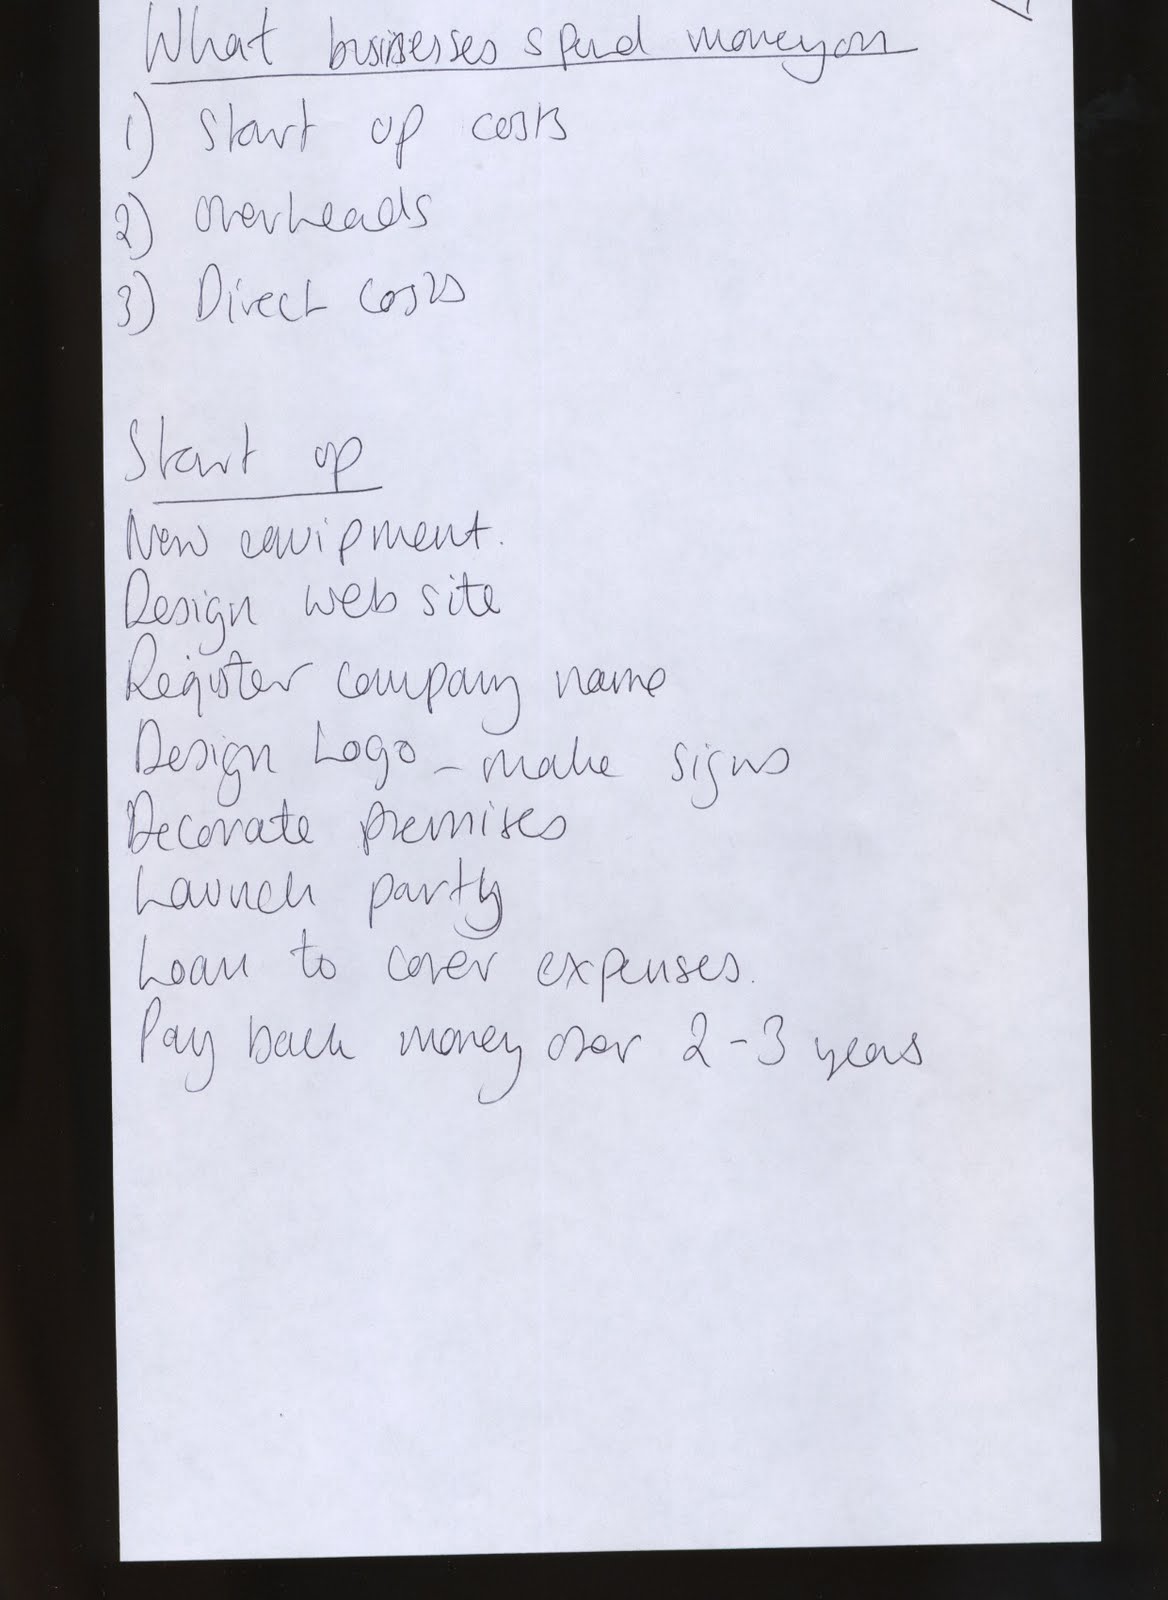 What businesses spend money on
1) Start up costs
2) Overheads
3) Direct costs
Start up
New equipment.
Design web site
Register company name
Design Logo - make signs
Decorate premises
Launch party
Loan to cover expenses.
Pay back money over 2-3 years